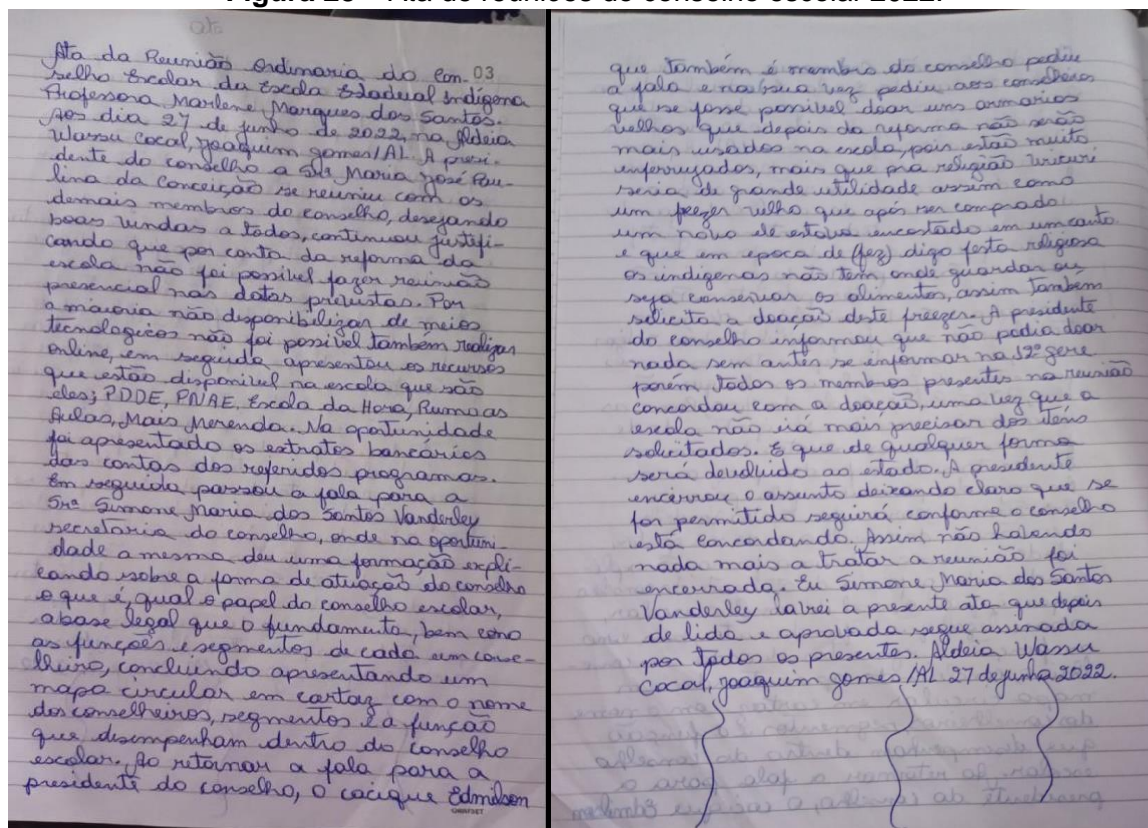 ata
Ata da Reunião Ordinaria do Con- 03
selho Escolar da Escola Estadual Indígena
Professora Marlene Marques dos Santos.
Aos dia 27 de junho de 2022, na Aldeia
Wassu Cocal, Joaquim gomes/AL. A presi-
dente do conselho a Srª Maria José Pau-
lina da Conceição se reuniu com os
demais membros do conselho, desejando
boas vindas a todos, continuou justifi-
cando que por conta da reforma da
escola não foi possível fazer reunião
presencial nas datas previstas. Por
a maioria não disponibilizar de meios
tecnologicos não foi possível também realizar
online, em seguida apresentou os recursos
que estão disponivel na escola que são
eles; PDDE, PNAE, Escola da Hora, Rumo as
Aulas, Mais Merenda. Na oportunidade
foi apresentado os estratos bancários
das contas dos referidos programas.
Em seguida passou a fala para a
Srª Simone Maria dos Santos Vanderley
secretaria do conselho, onde na oportuni-
dade a mesma deu uma formação expli-
cando sobre a forma de atuação do conselho
o que é, qual o papel do conselho escolar,
a base legal que o fundamenta, bem como
as funções e segmentos de cada um conse-
lheiro, concluindo apresentando um
mapa circular em cartaz com o nome
dos conselheiros, segmentos e a função
que desempenham dentro do conselho
escolar. Ao retornar a fala para a
presidente do conselho, o cacique Edmilson
que também é membro do conselho pediu
a fala e na sua vez pediu aos conselheiros
que se fosse possível doar uns armarios
velhos que depois da reforma não serão
mais usados na escola, pois estão muito
enferrujados, mais que pra religião Uricuri
seria de grande utilidade assim como
um freezer velho que após ser comprado
um novo ele estava encostado em um canto
e que em epoca de (fez) digo festa religiosa
os indigenas não tem onde guardar ou
seja conservar os alimentos, assim também
solicita a doação deste freezer. A presidente
do conselho informou que não podia doar
nada sem antes se informar na 12ª gere
porém todos os membros presentes na reunião
concordou com a doação, uma vez que a
escola não irá mais precisar dos itens
solicitados. E que de qualquer forma
será devolvido ao estado. A presidente
encerrou o assunto deixando claro que se
for permitido seguirá conforme o conselho
está concordando. Assim não havendo
nada mais a tratar a reunião foi
encerrada. Eu Simone Maria dos Santos
Vanderley lavrei a presente ata que depois
de lida e aprovada segue assinada
por todos os presentes. Aldeia Wassu
Cocal, Joaquim gomes/AL 27 de junho 2022.